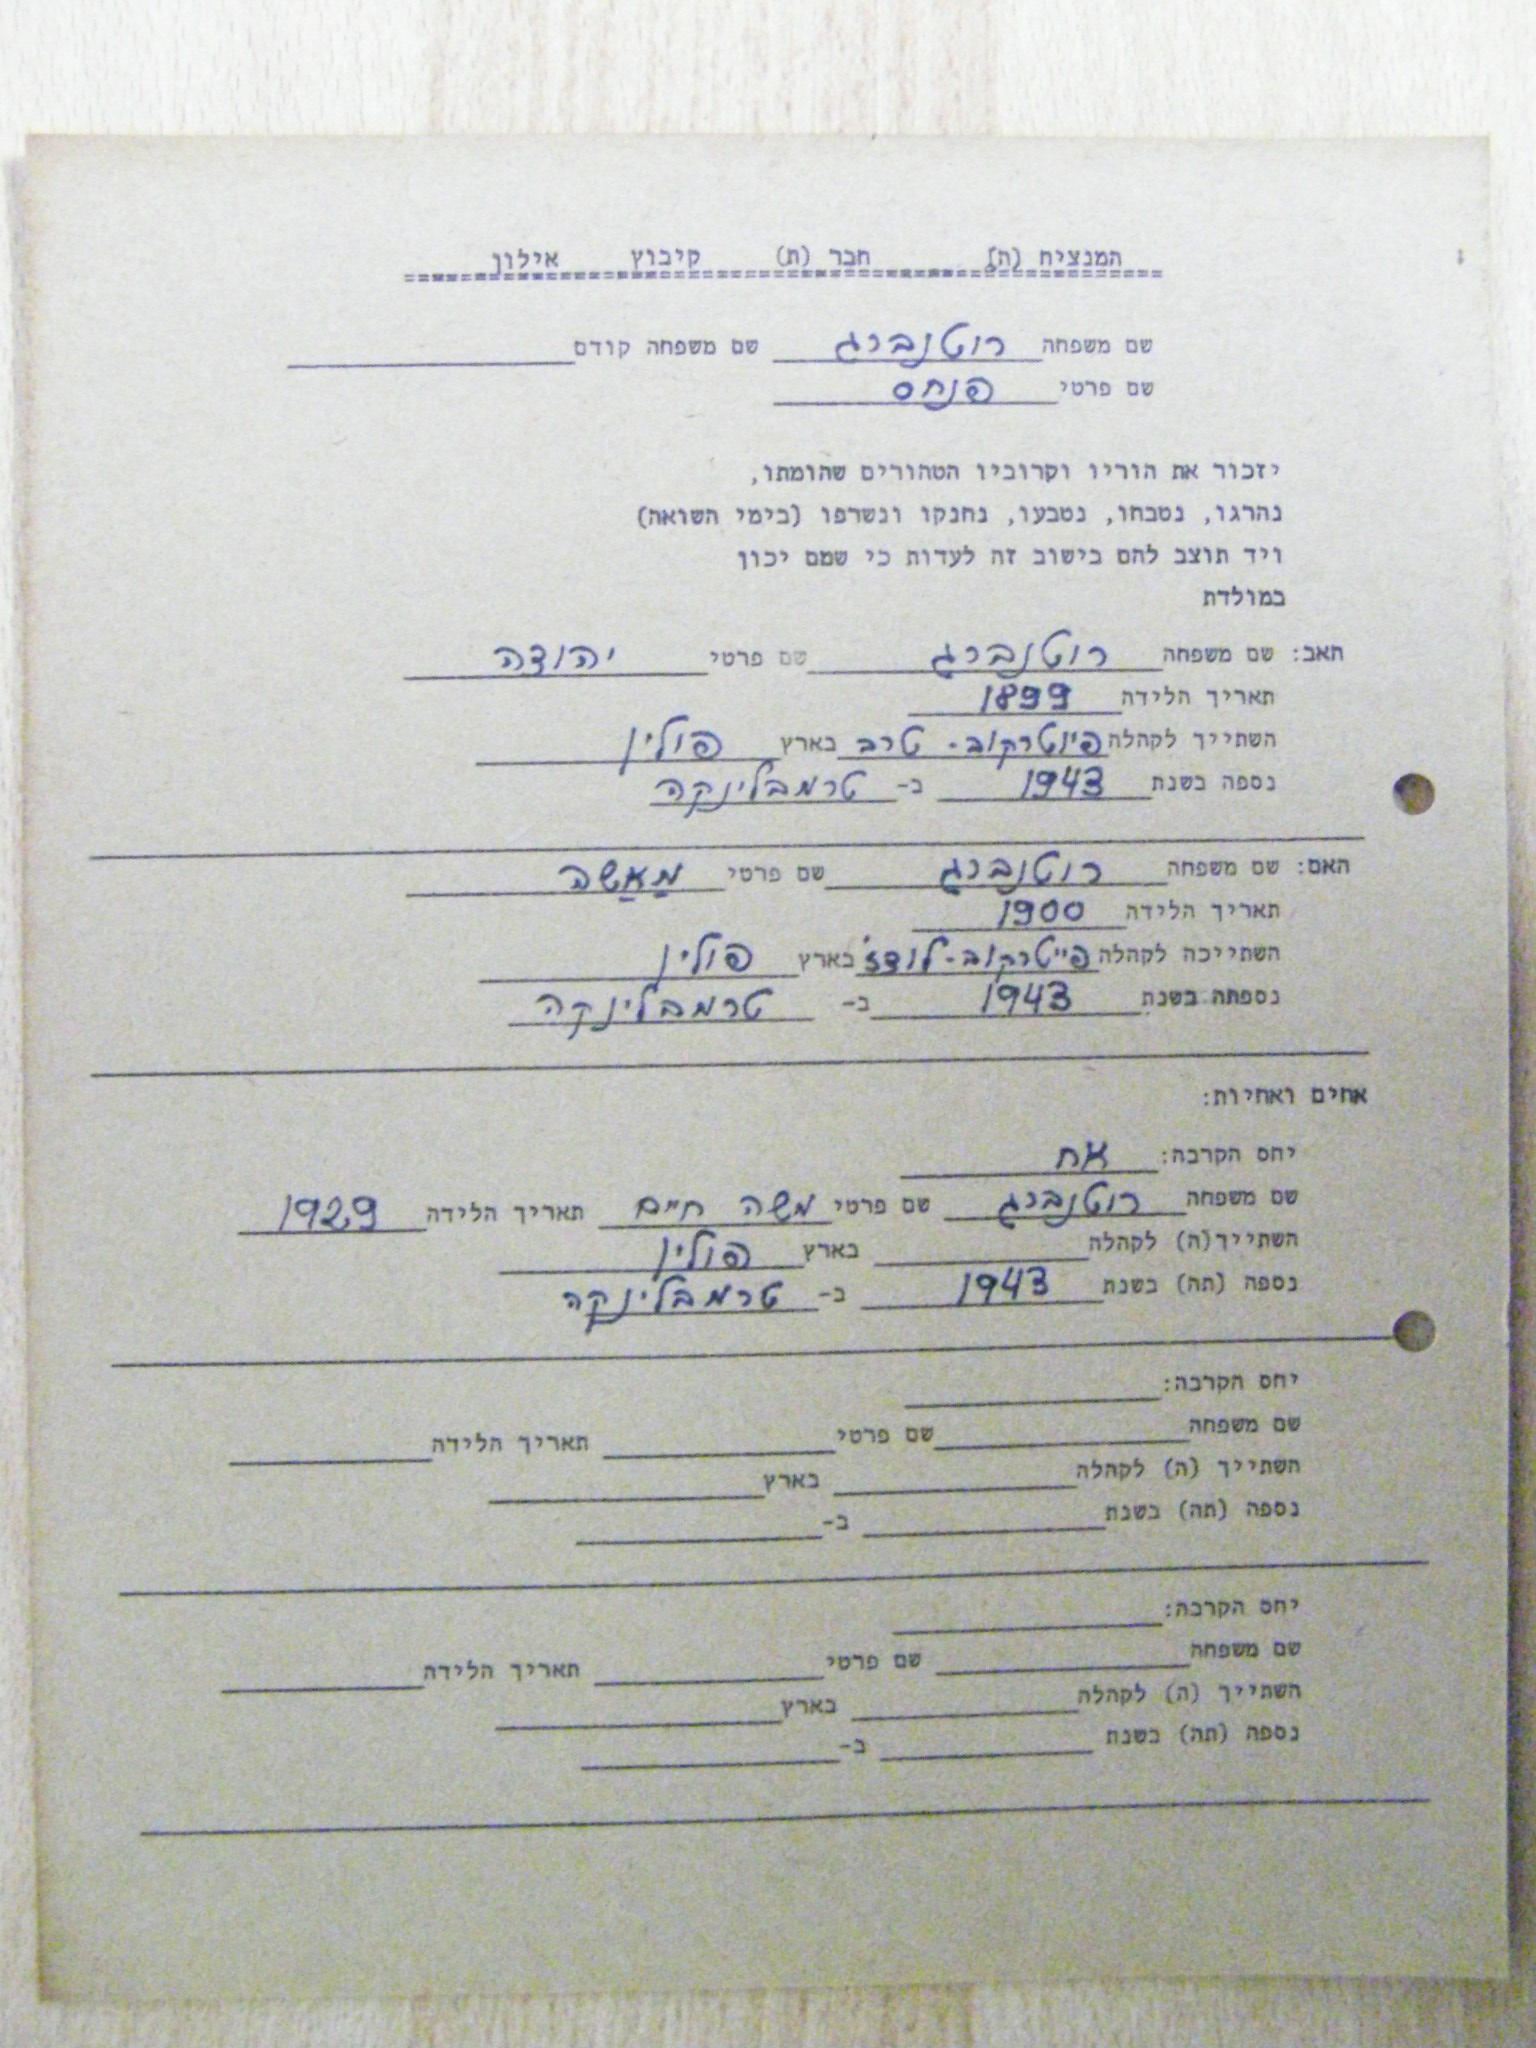 המנציח (ה) חבר (ת) קיבוץ אילון
שם משפחה רוטנברג שם משפחה קודם
שם פרטי פנחס
יזכור את הוריו וקרוביו הטהורים שהומתו,
נהרגו, נטבחו, נטבעו, נחנקו ונשרפו (בימי השואה)
ויד תוצב להם בישוב זה לעדות כי שמם יכון
במולדת
האב: שם משפחה רוטנברג שם פרטי יהודה
תאריך הלידה 1899
השתייך לקהלה פיוטרקוב - טרב בארץ פולין
נספה בשנת 1943 ב- טרמבלינקה
האם: שם משפחה רוטנברג שם פרטי מַאַשה
תאריך הלידה 1900
השתייכה לקהלה פייטרקוב - לודז' בארץ פולין
נספתה בשנת 1943 ב- טרמבלינקה
אחים ואחיות:
יחס הקרבה: אח
שם משפחה רוטנברג שם פרטי משה חיים תאריך הלידה 1929
השתייך(ה) לקהלה בארץ פולין
נספה (תה) בשנת 1943 ב- טרמבלינקה
יחס הקרבה:
שם משפחה שם פרטי תאריך הלידה
השתייך (ה) לקהלה בארץ
נספה (תה) בשנת ב-
יחס הקרבה:
שם משפחה שם פרטי תאריך הלידה
השתייך (ה) לקהלה בארץ
נספה (תה) בשנת ב-